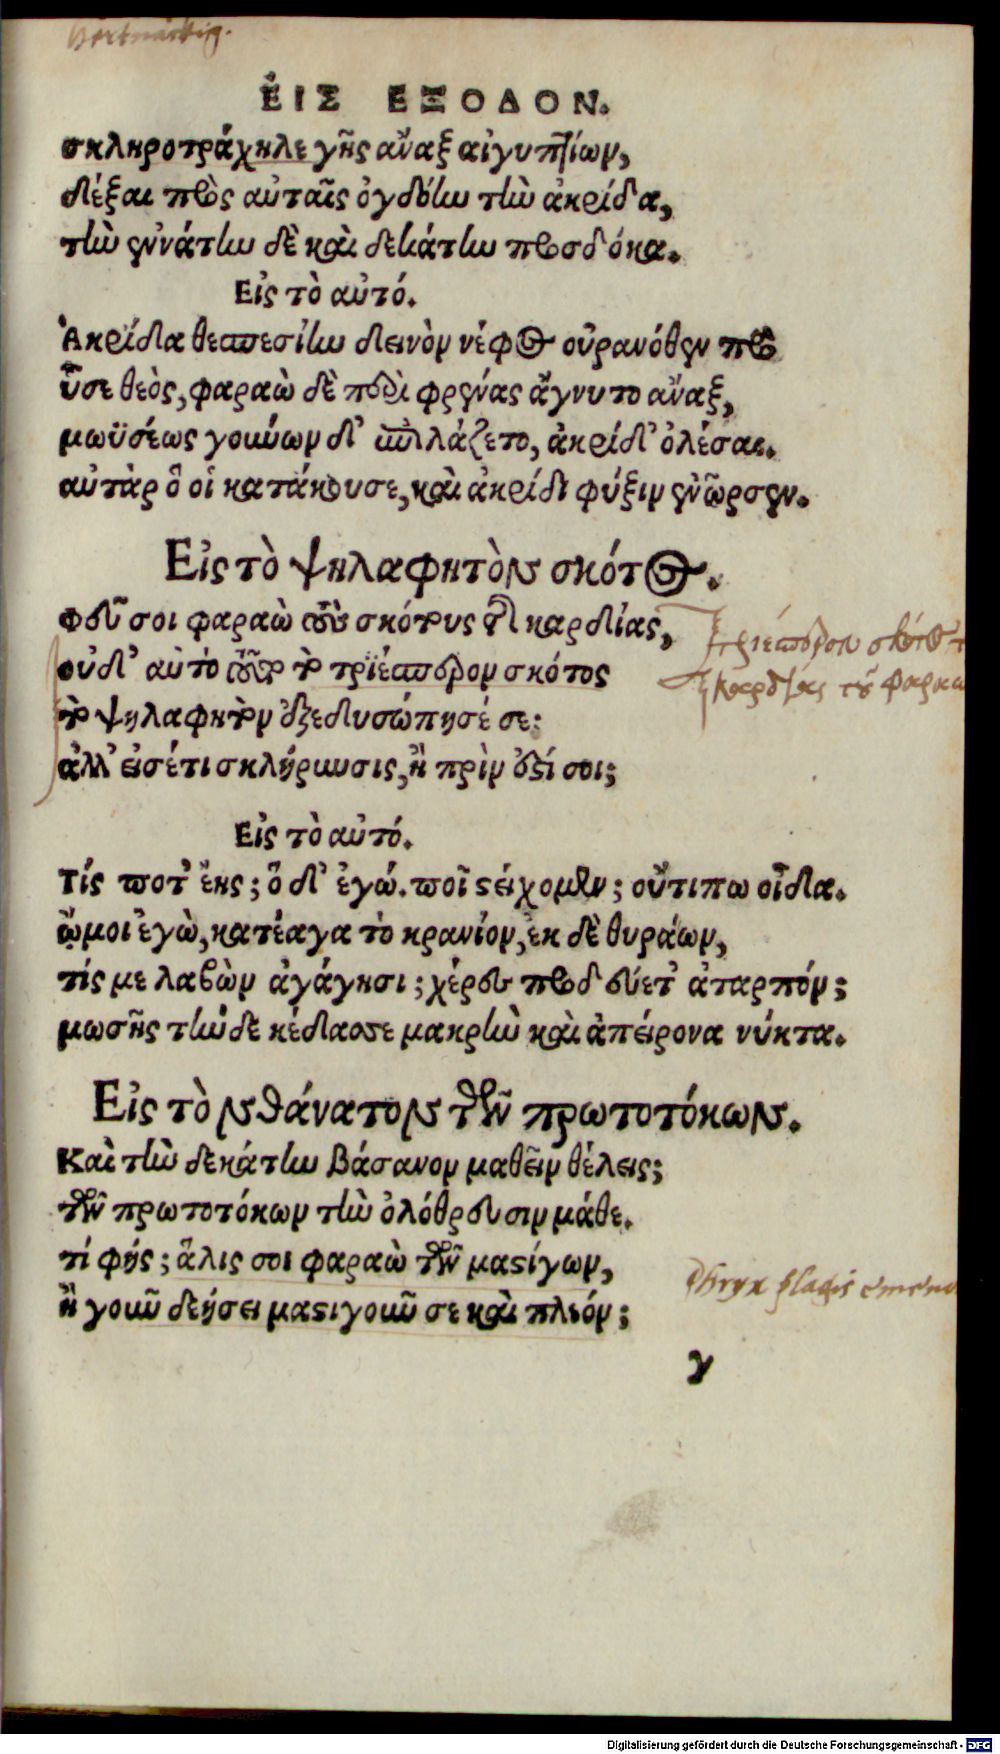 hartnäckig.
ἘΙΣ ΕΞΟΔΟΝ.
σκληροτράχηλε γῆς ἄναξ αἰγυπτίων,
δέξαι πρὸς αὐταῖς ὀγδόην τὴν ἀκρίδα,
τὴν ἐννάτην δὲ καὶ δεκάτην προσδόκα.
Εἰς τὸ αὐτό.
Ἀκρίδα θεσπεσίην δεινὸν νέφος οὐρανόθεν πρὸ
ὗσε θεὸς, φαραὼ δὲ περὶ φρένας ἄγνυτο ἄναξ,
μωϋσέως γούνων δ' ἐπελάζετο, ἀκρίδ' ὀλέσαι.
αὐτὰρ ὅ οἱ κατάκουσε, καὶ ἀκρίδι φύξιν ἐνῶρσεν.
Εἰς τὸ ψηλαφητὸν σκότος.
Φεῦ σοι φαραὼ τοῦ σκότους τῆς καρδίας,
οὐδ' αὐτὸ τοῦτο τὸ τριέσπερον σκότος
τὸ ψηλαφητὸν ἐξεδυσώπησέ σε:
ἀλλ' εἰσέτι σκλήρωσις, ἣ πρὶν ἐστί σοι;
τριέσπερον σκότος τ
τῆς καρδίας τοῦ Φαραω
Εἰς τὸ αὐτό.
Τίς ποτ' ἔης; ὅ δ' ἐγώ. ποῖ στείχομεν; οὔτιπω οἶδα.
ὤμοι ἐγὼ, κατέαγα τὸ κρανίον, ἐκ δὲ θυράων,
τίς με λαβὼν ἀγάγησι; χέρσευ ποδεύετ' ἀταρπόν;
μωσῆς τὴνδε κέδασσε μακρὴν καὶ ἀπείρονα νύκτα.
Εἰς τὸν θάνατον τῶν πρωτοτόκων.
Καὶ τὴν δεκάτην βάσανον μαθεῖν θέλεις;
τῶν πρωτοτόκων τὴν ὀλόθρευσιν μάθε.
τί φής; ἅλις σοι φαραὼ τῶν μαστίγων,
ἢ γοῦν δεήσει μαστιγοῦν σε καὶ πλέον;
Phryx plagis emend
γ
Digitalisierung gefördert durch die Deutsche Forschungsgemeinschaft - DFG